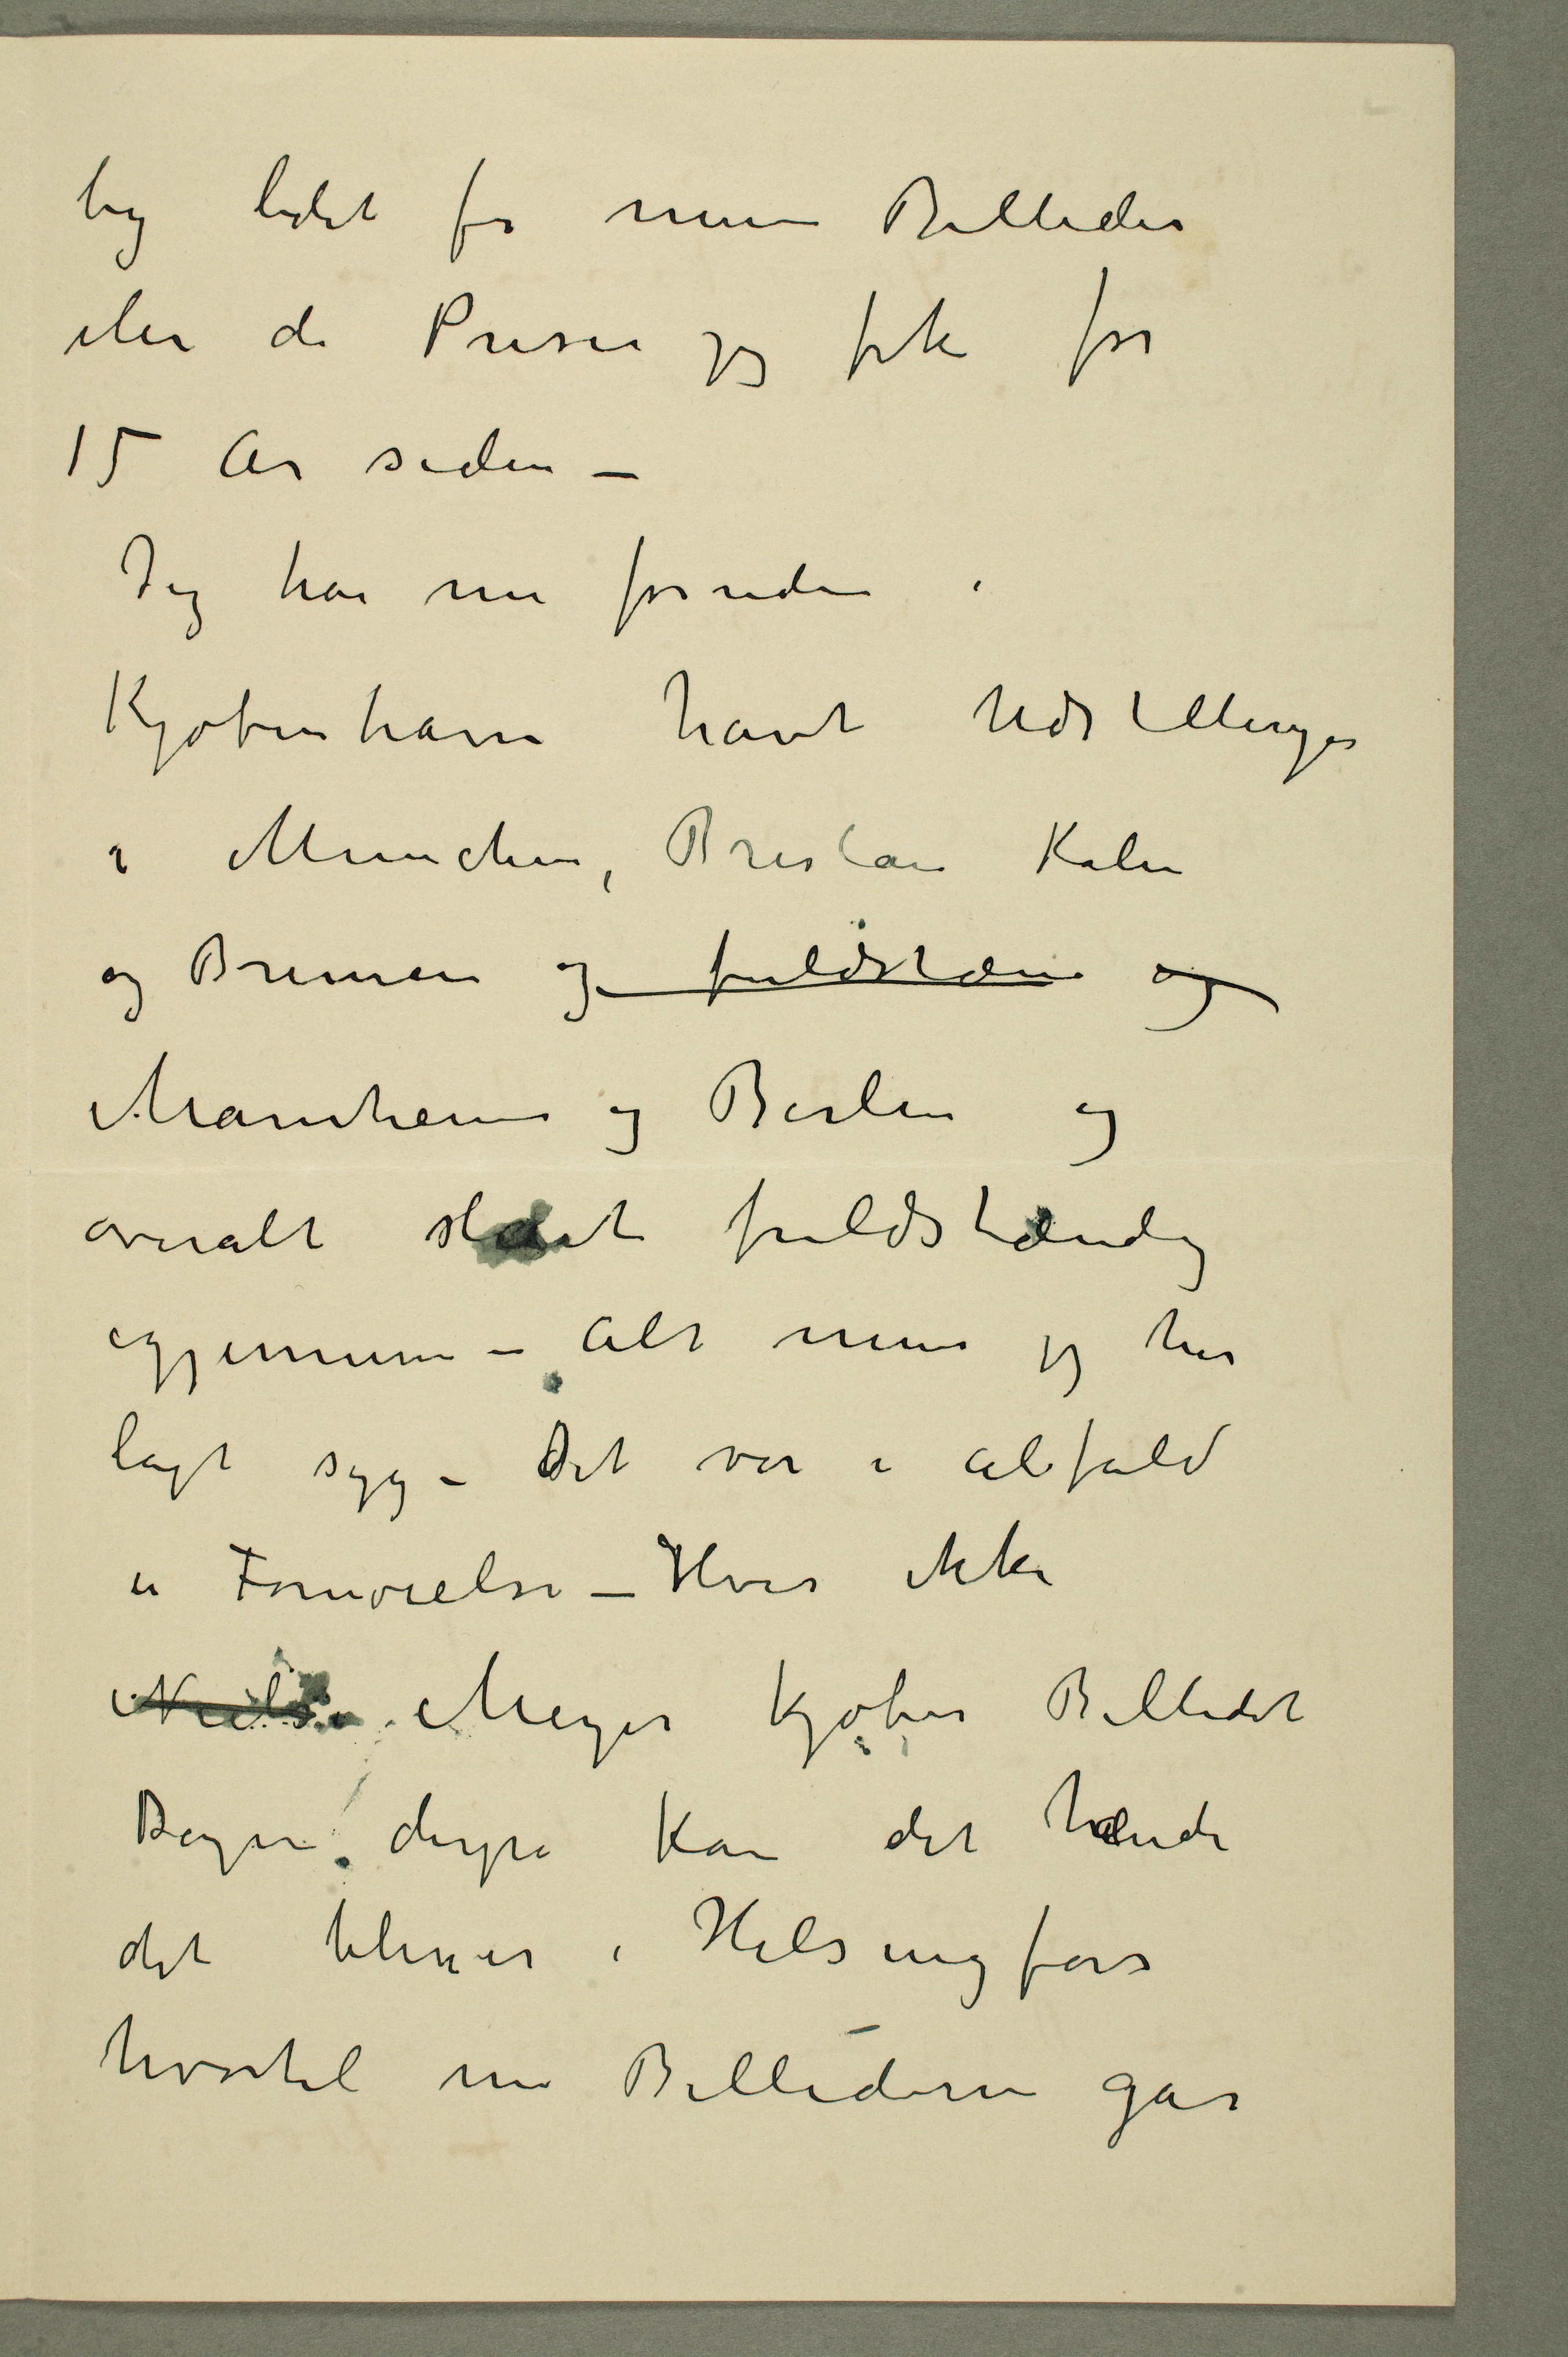 lig lidet for mine Billeder
eller de Priser jeg fik for
15 År siden –
Jeg har nu foruden i
Kjøbenhavn havt Udstillinger
i Munchen, Breslau Køln
og Bremen og fuldstæn og
Mannheim og Berlin og
overalt slået fuldstændig
igjennem – Alt mens jeg har
lagt syg – Det var i alfald
en Fornøielse – Hvis ikke
Niels Meyer kjøber Billedet
Dagen derpå kan det hænde
det bliver i Helsingfors
hvortil nu Billederne går